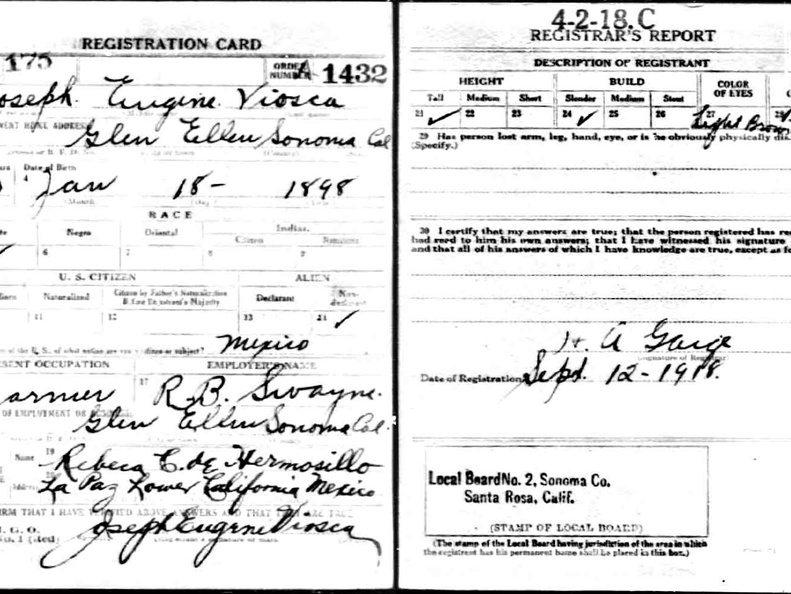 REGISTRATION CARD
175
ORDER NUMBER A 1432
oseph Eugene Viosca
ENT HOME ADDRESS
Glen Ellen Sonoma Cal
Date of Birth
4 Jan 18- 1898
RACE
Negro
Oriental
Indian
Citizen
6
7
8
9
U. S. CITIZEN
ALIEN
Naturalized
Citizen by Father's Naturalization
Declarant
11
12
13
14 ✓
of the U. S., of what nation are you a citizen or subject? Mexico
SENT OCCUPATION
EMPLOYER'S NAME
armer
17
R.B. Swayne.
OF EMPLOYMENT OR
Glen Ellen Sonoma Cal.
Name
19
Rebeca C. de Hermosillo
Address
La Paz Lower California Mexico
IRM THAT I HAVE VERIFIED ABOVE ANSWERS AND THAT THEY ARE TRUE
Joseph Eugene Viosca
4-2-18. C
REGISTRAR'S REPORT
DESCRIPTION OF REGISTRANT
HEIGHT
BUILD
COLOR OF EYES
Tall
Medium
Short
Slender
Medium
Stout
21 ✓
22
23
24 ✓
25
26
27 Light Brown
28
29 Has person lost arm, leg, hand, eye, or is he obviously physically dis
(Specify.)
30 I certify that my answers are true; that the person registered has rea
had read to him his own answers; that I have witnessed his signature
and that all of his answers of which I have knowledge are true, except as fo
Date of Registration Sept. 12-1918.
Local Board No. 2, Sonoma Co.
Santa Rosa, Calif.
(STAMP OF LOCAL BOARD)
(The stamp of the Local Board having jurisdiction of the area in which
the registrant has his permanent home shall be placed in this box.)